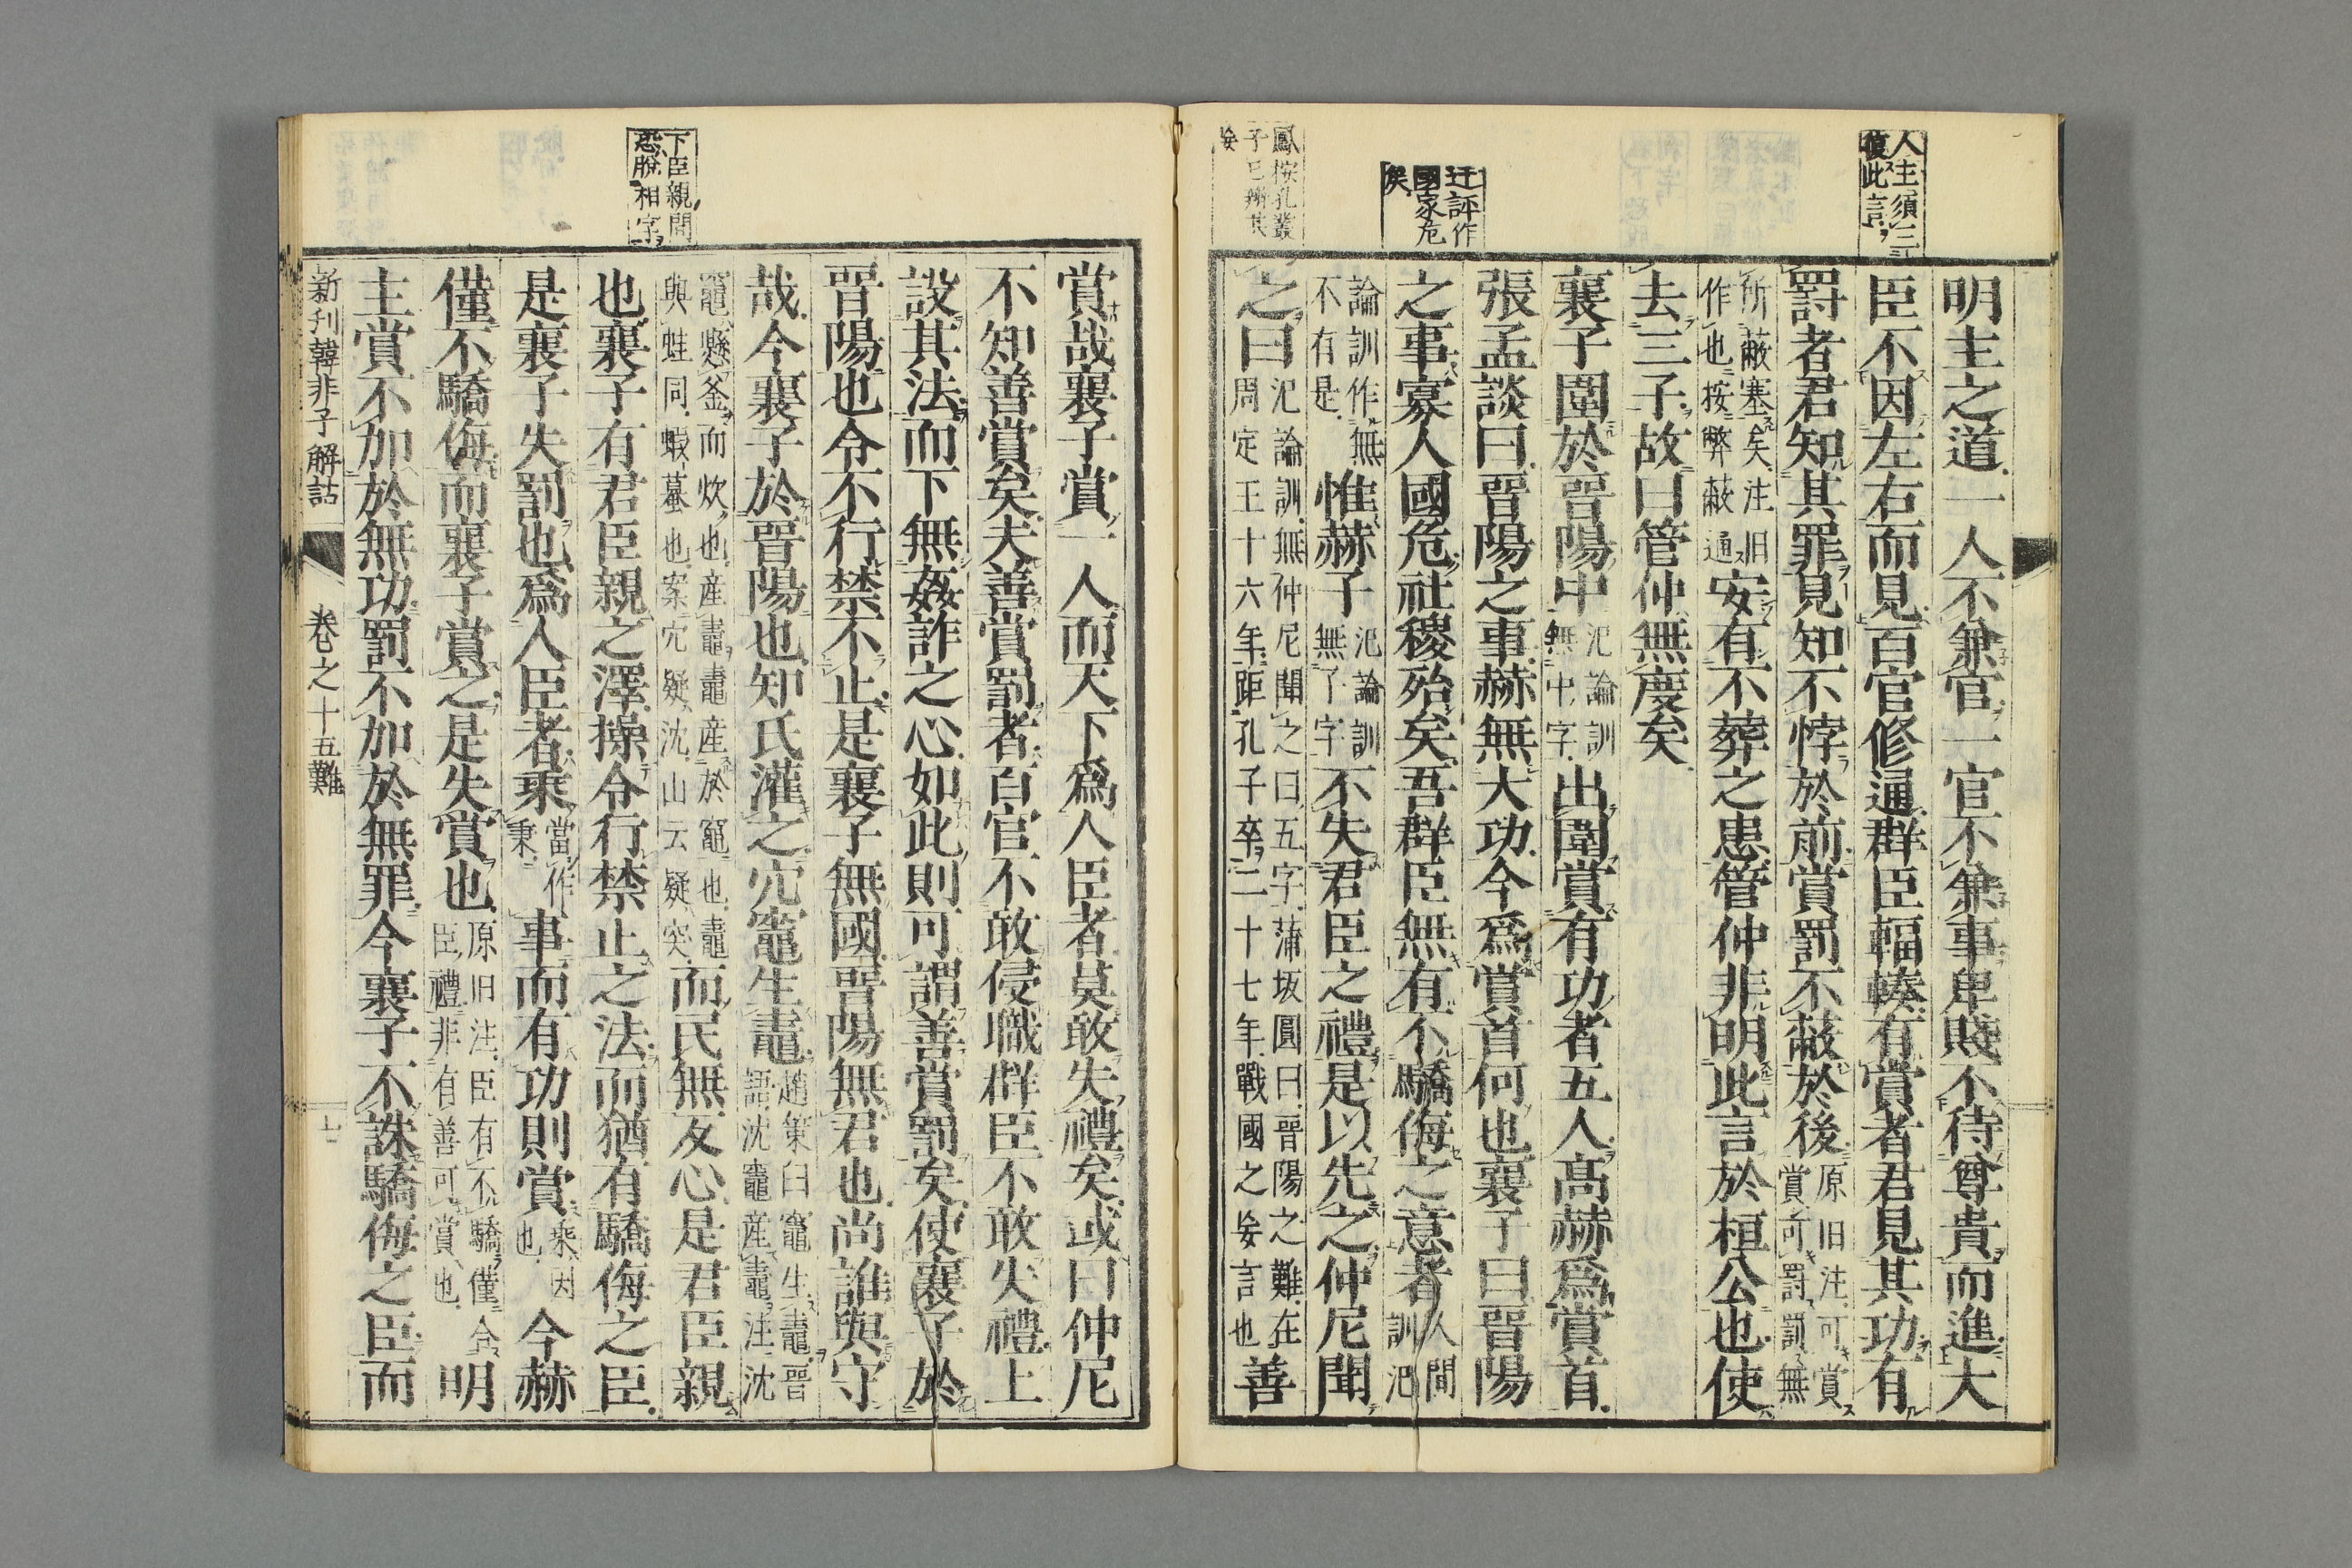 人主須三
復此言
明主之道一人不兼官一官不兼事卑賤不待尊貴而進大
臣不因左右而見百官修通群臣輻輳有賞者君見其功有
罰者君知其罪見知不悖於前賞罰不蔽於後原旧注可賞賞可罰罰無
所蔽塞矣注旧作也按弊蔽通安有不葬之患管仲非明此言於桓公也使
去三子故曰管仲無度矣
襄子圍於晉陽中氾論訓無中字出圍賞有功者五人高赫爲賞首
張孟談曰晉陽之事赫無大功今爲賞首何也襄子曰晉陽
迂評作
國家危
矣
之事寡人國危社稷殆矣吾群臣無有不驕侮之意者人間訓氾
論訓作無不有是惟赫子氾論訓無子字不失君臣之禮是以先之仲尼聞
鳳按孔叢
子已辨其
妄
之曰氾論訓無仲尼聞之曰五字蒲坂圓曰晉陽之難在周定王十六年距孔子卒二十七年戰國之妄言也善
賞哉襄子賞一人而天下爲人臣者莫敢失禮矣或曰仲尼
不知善賞矣夫善賞罰者百官不敢侵職群臣不敢失禮上
設其法而下無姦詐之心如此則可謂善賞罰矣使襄子於
晉陽也令不行禁不止是襄子無國晉陽無君也尚誰與守
哉今襄子於晉陽也知氏灌之穴竈生鼃趙策臼竈生鼃晉語沈竈産鼃注沈
竈懸釜而炊也産鼃鼃産於竈也鼃與蛙同蝦蟇也案穴疑沈山云疑突而民無反心是君臣親
下臣親間
恐脫相字
也襄子有君臣親之澤操令行禁止之法而猶有驕侮之臣
是襄子失罰也爲人臣者乘當作秉事而有功則賞乘因也今赫
僅不驕侮而襄子賞之是失賞也原旧注臣有不驕僅合臣禮非有善可賞也明
主賞不加於無功罰不加於無罪今襄子不誅驕侮之臣而
新刊韓非子解詁 卷之十五難 七